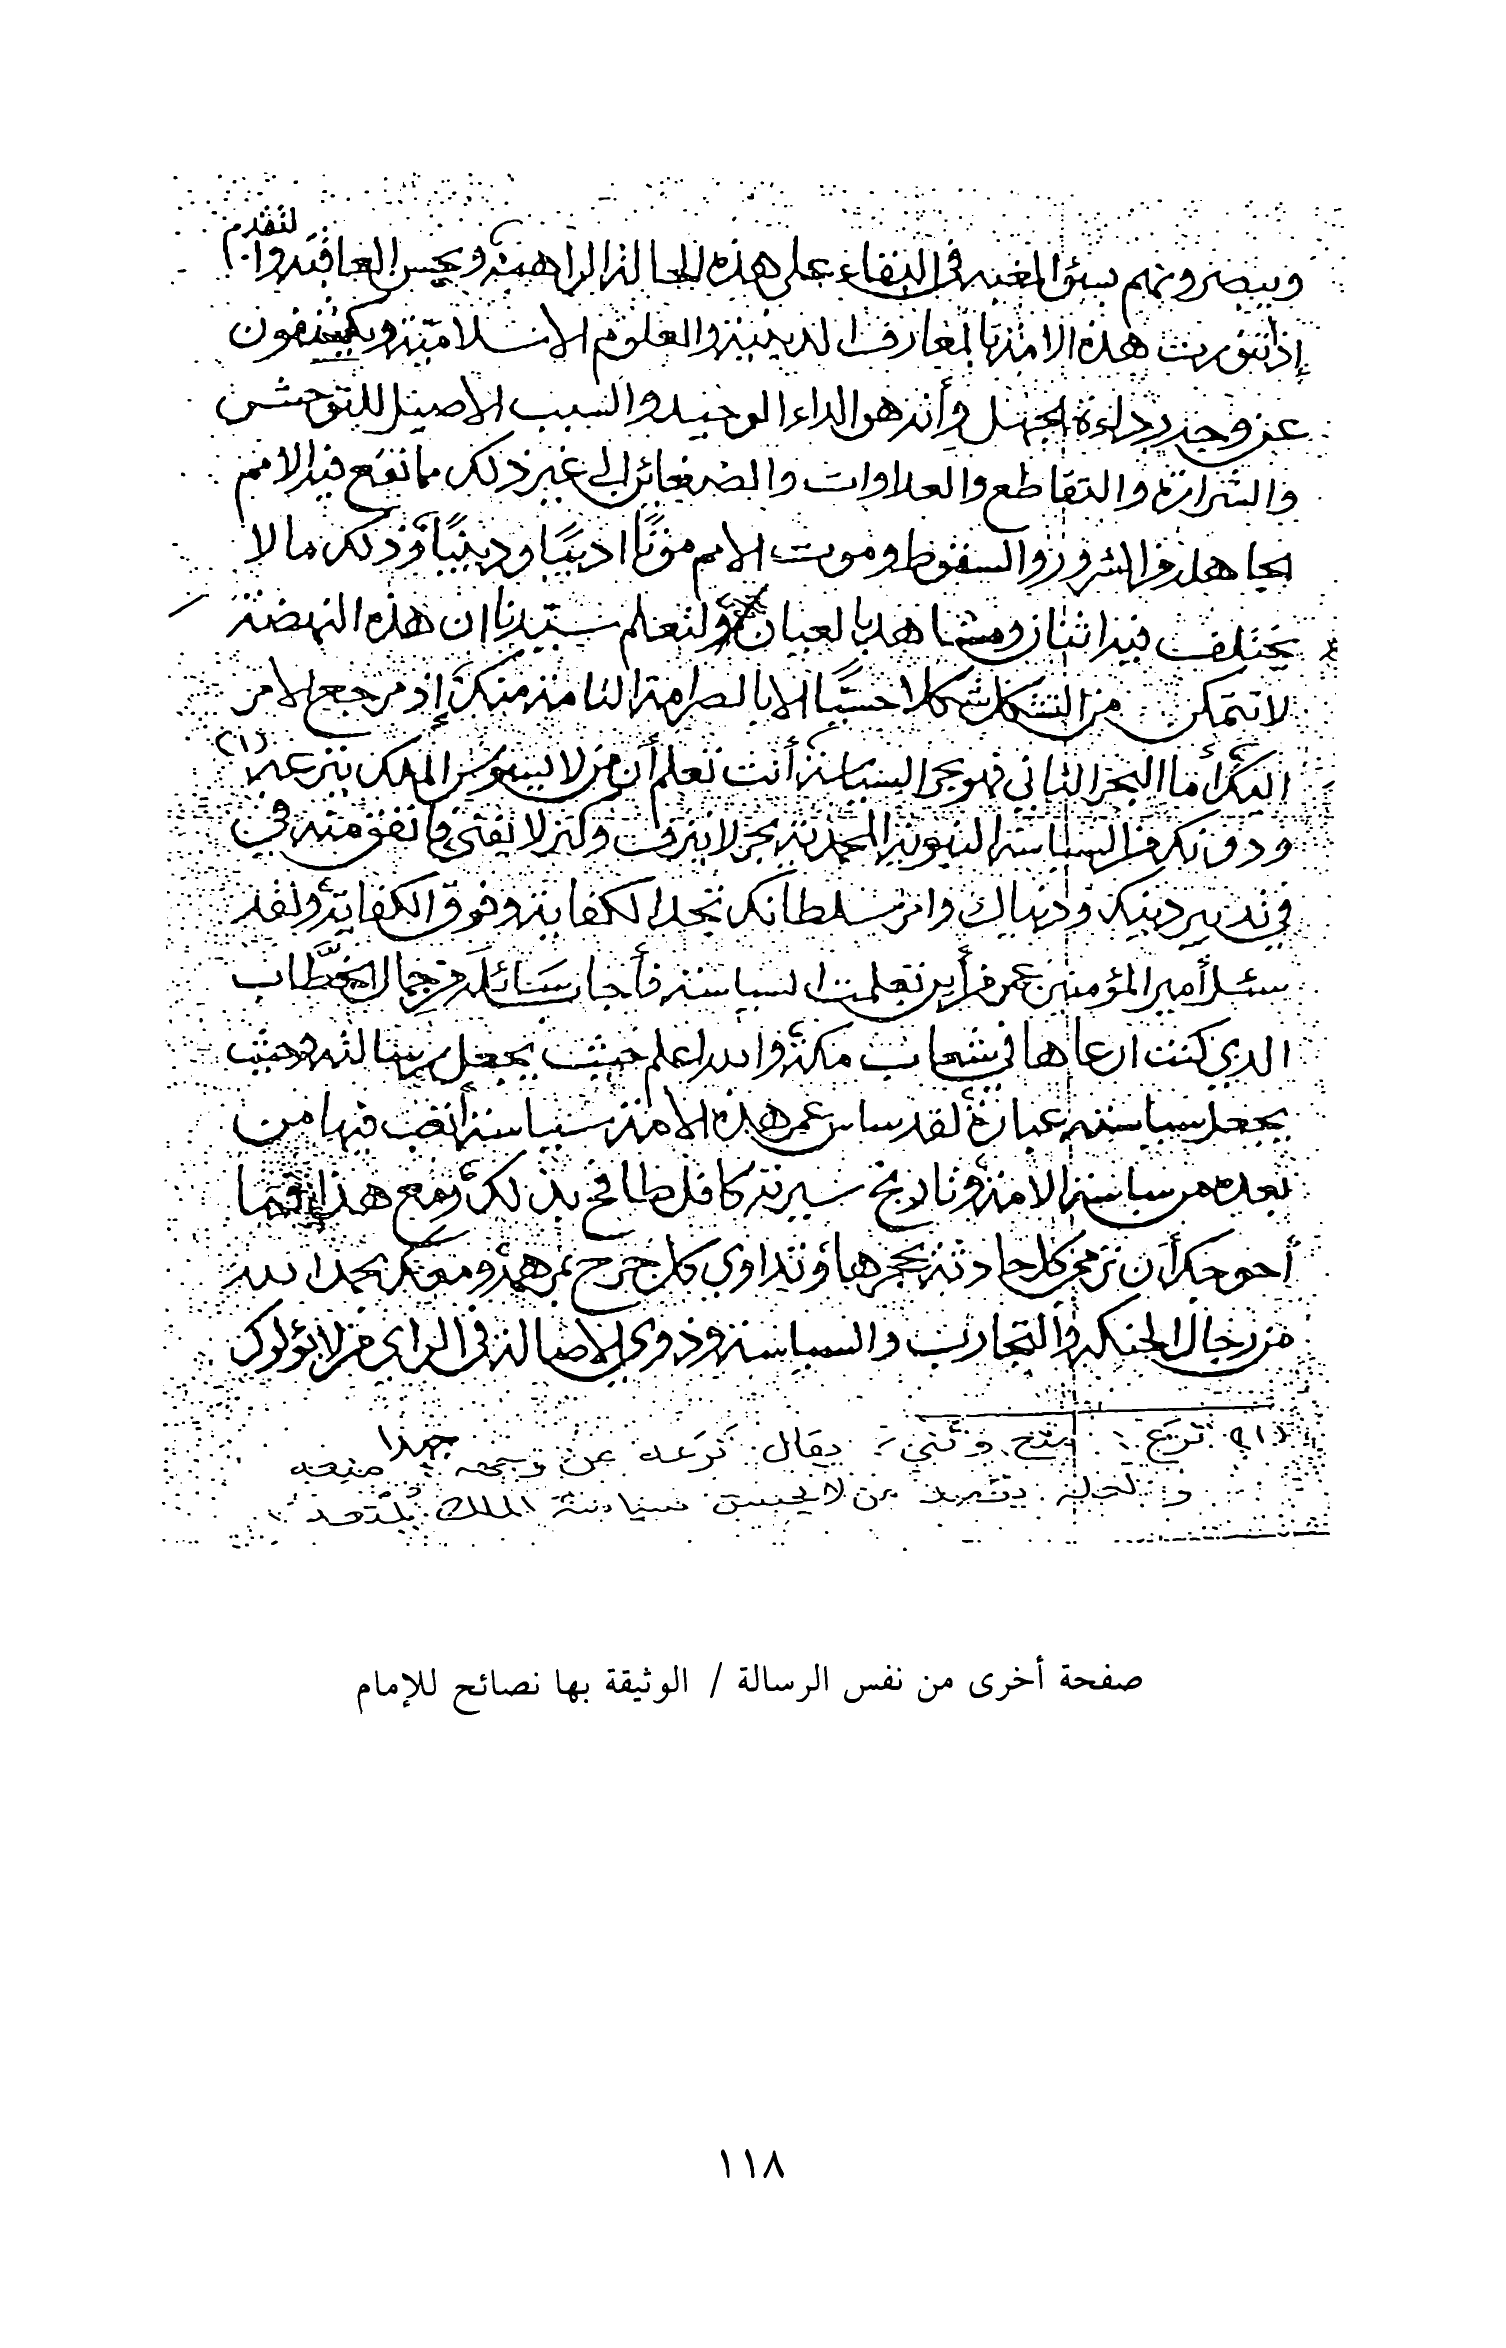 ويبصرونهم سوء المغبة في البقاء على هذه الحالة الراهنة ويحسن العاقبة وا لتقدم
إذا تنورت هذه الامة بالمعارف الدينية والعلوم الاسلامية ويكشفون
عن وجه رداءة الجهل وأنه هو الداء الوحيد والسبب الاصيل للتوحش
والشرارة والتقاطع والعداوات والضغائن إلى غير ذلك مما تقع فيه الامم
الجاهلة من الشرور والسقوط وموت الامم موتًا ادبيًا ودينيًا وذلك مالا
يختلف فيه اثنان ومشاهد بالعيان ولتعلم سيدنا ان هذه النهضة
لا تتمكن من التشكل شكلا حسيًا الا بالصرامة التامة منكم إذ مرجع الامر
اليكم أما البحر الثاني فهو بحر السياسة أنت تعلم أن من لا يسوس الملك ينزعه (١)
ودونك من السياسة النبوية المحمدية بحر لا ينزف وكنز لا يفنى فانفق منه في
في تدبير دينك ودنياك وامر سلطانك تجد الكفاية وفوق الكفاية ولقد
سئل أمير المؤمنين عمر من أين تعلمت السياسة فأجاب سائله من جمال الخطاب
الذي كنت ارعاها في شعاب مكة والله اعلم حيث يجعل رسالته وحيث
يجعل سياسته عبارة لقد ساس عمر هذه الامة سياسة أتعب فيها من
بعده من ساسة الامة وتاريخ سيرته كافل طافح بذلك ومع هذا فما
أحوجكم أن ترمى كل حادثة بحجرها وتداوى كل جرح بمرهمه ومعكم بحمد الله
من رجال الحنكة والتجارب والسياسة وذوي الاصالة في الراي من لا يؤلوك
(١) نزع : يقال نزعه عن وجهه : منعه
ولعله يقصد من لا يحسن سياسة الملك
صفحة أخرى من نفس الرسالة / الوثيقة بها نصائح للإمام
١١٨